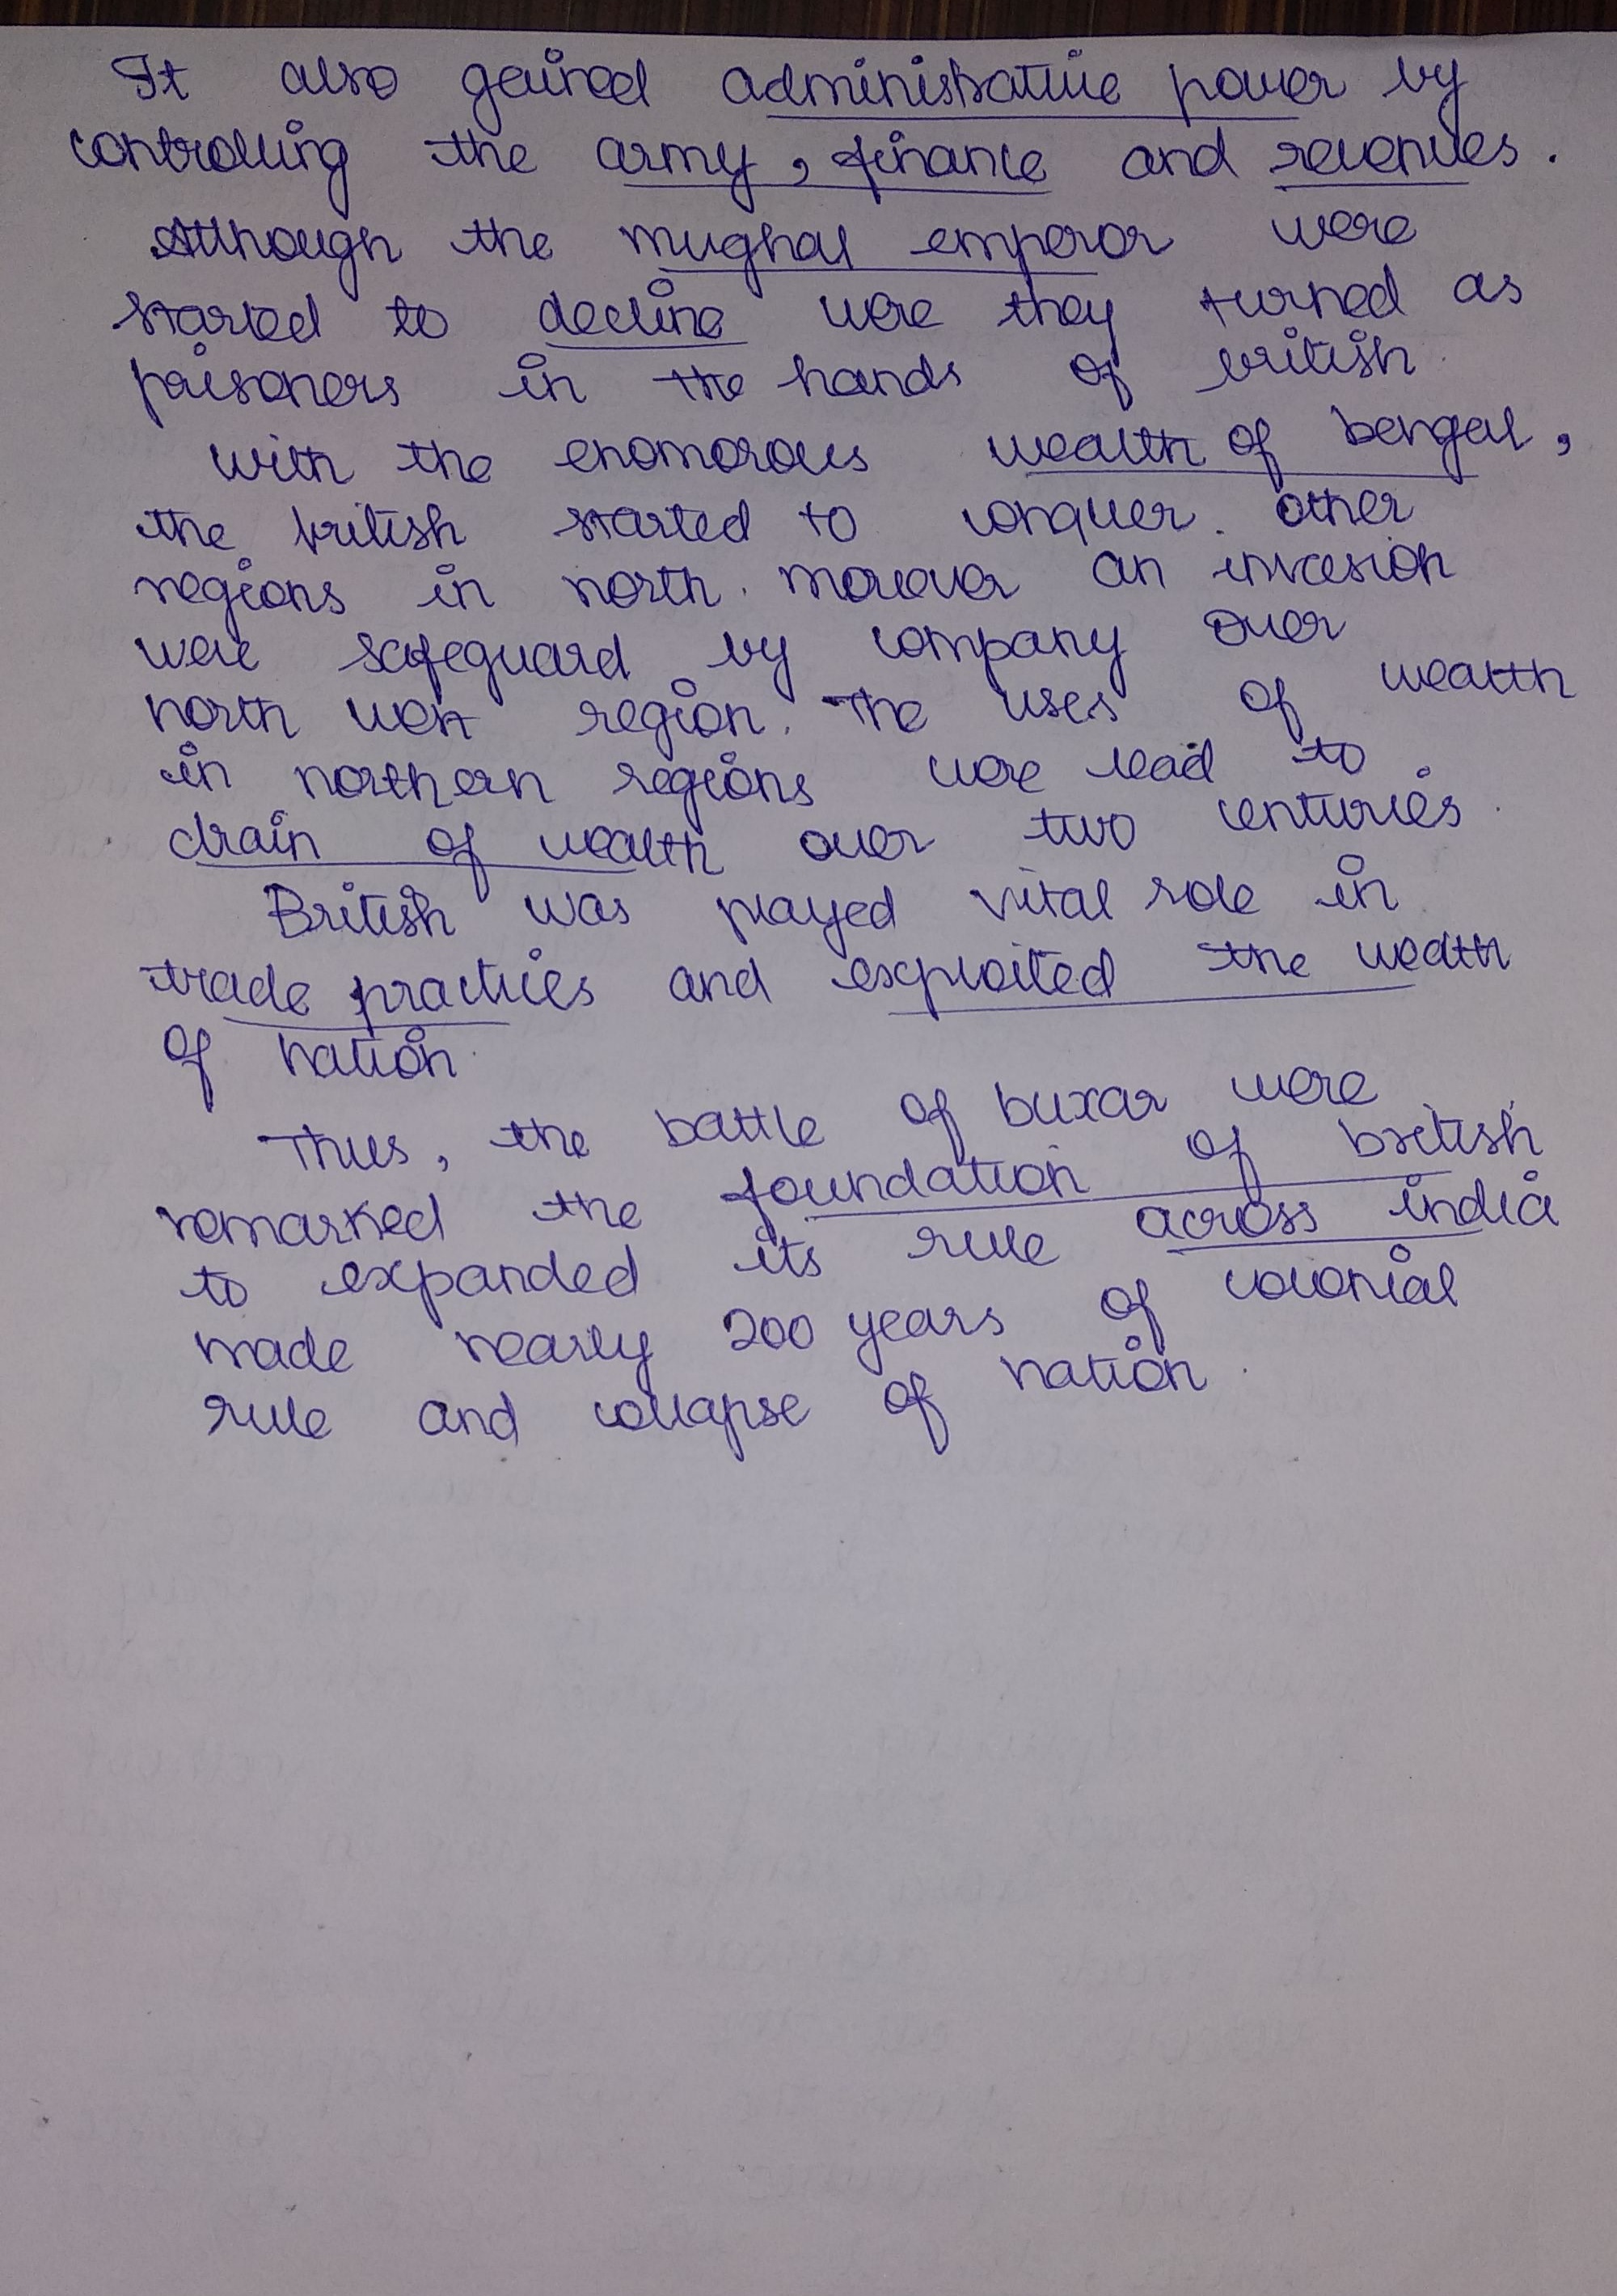 It also gained administrative power by
controlling the army, finance and revenues.
Although the mughal emperor were
started to decline were they turned as
prisoners in the hands of british.
with the enomorous wealth of bengal,
the british started to conquer other
regions in north. moreover an invasion
were safeguard by company over
north west region. The uses of wealth
in northern regions were lead to
drain of wealth over two centuries.
British was played vital role in
trade practices and exploited the wealth
of nation.
Thus, the battle of buxar were
remarked the foundation of british
to expanded its rule across india
made nearly 200 years of colonial
rule and collapse of nation.